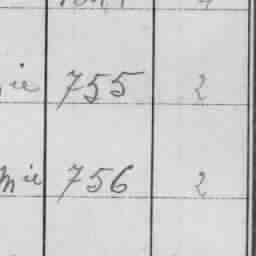 ie 755 2
Mie 756 2